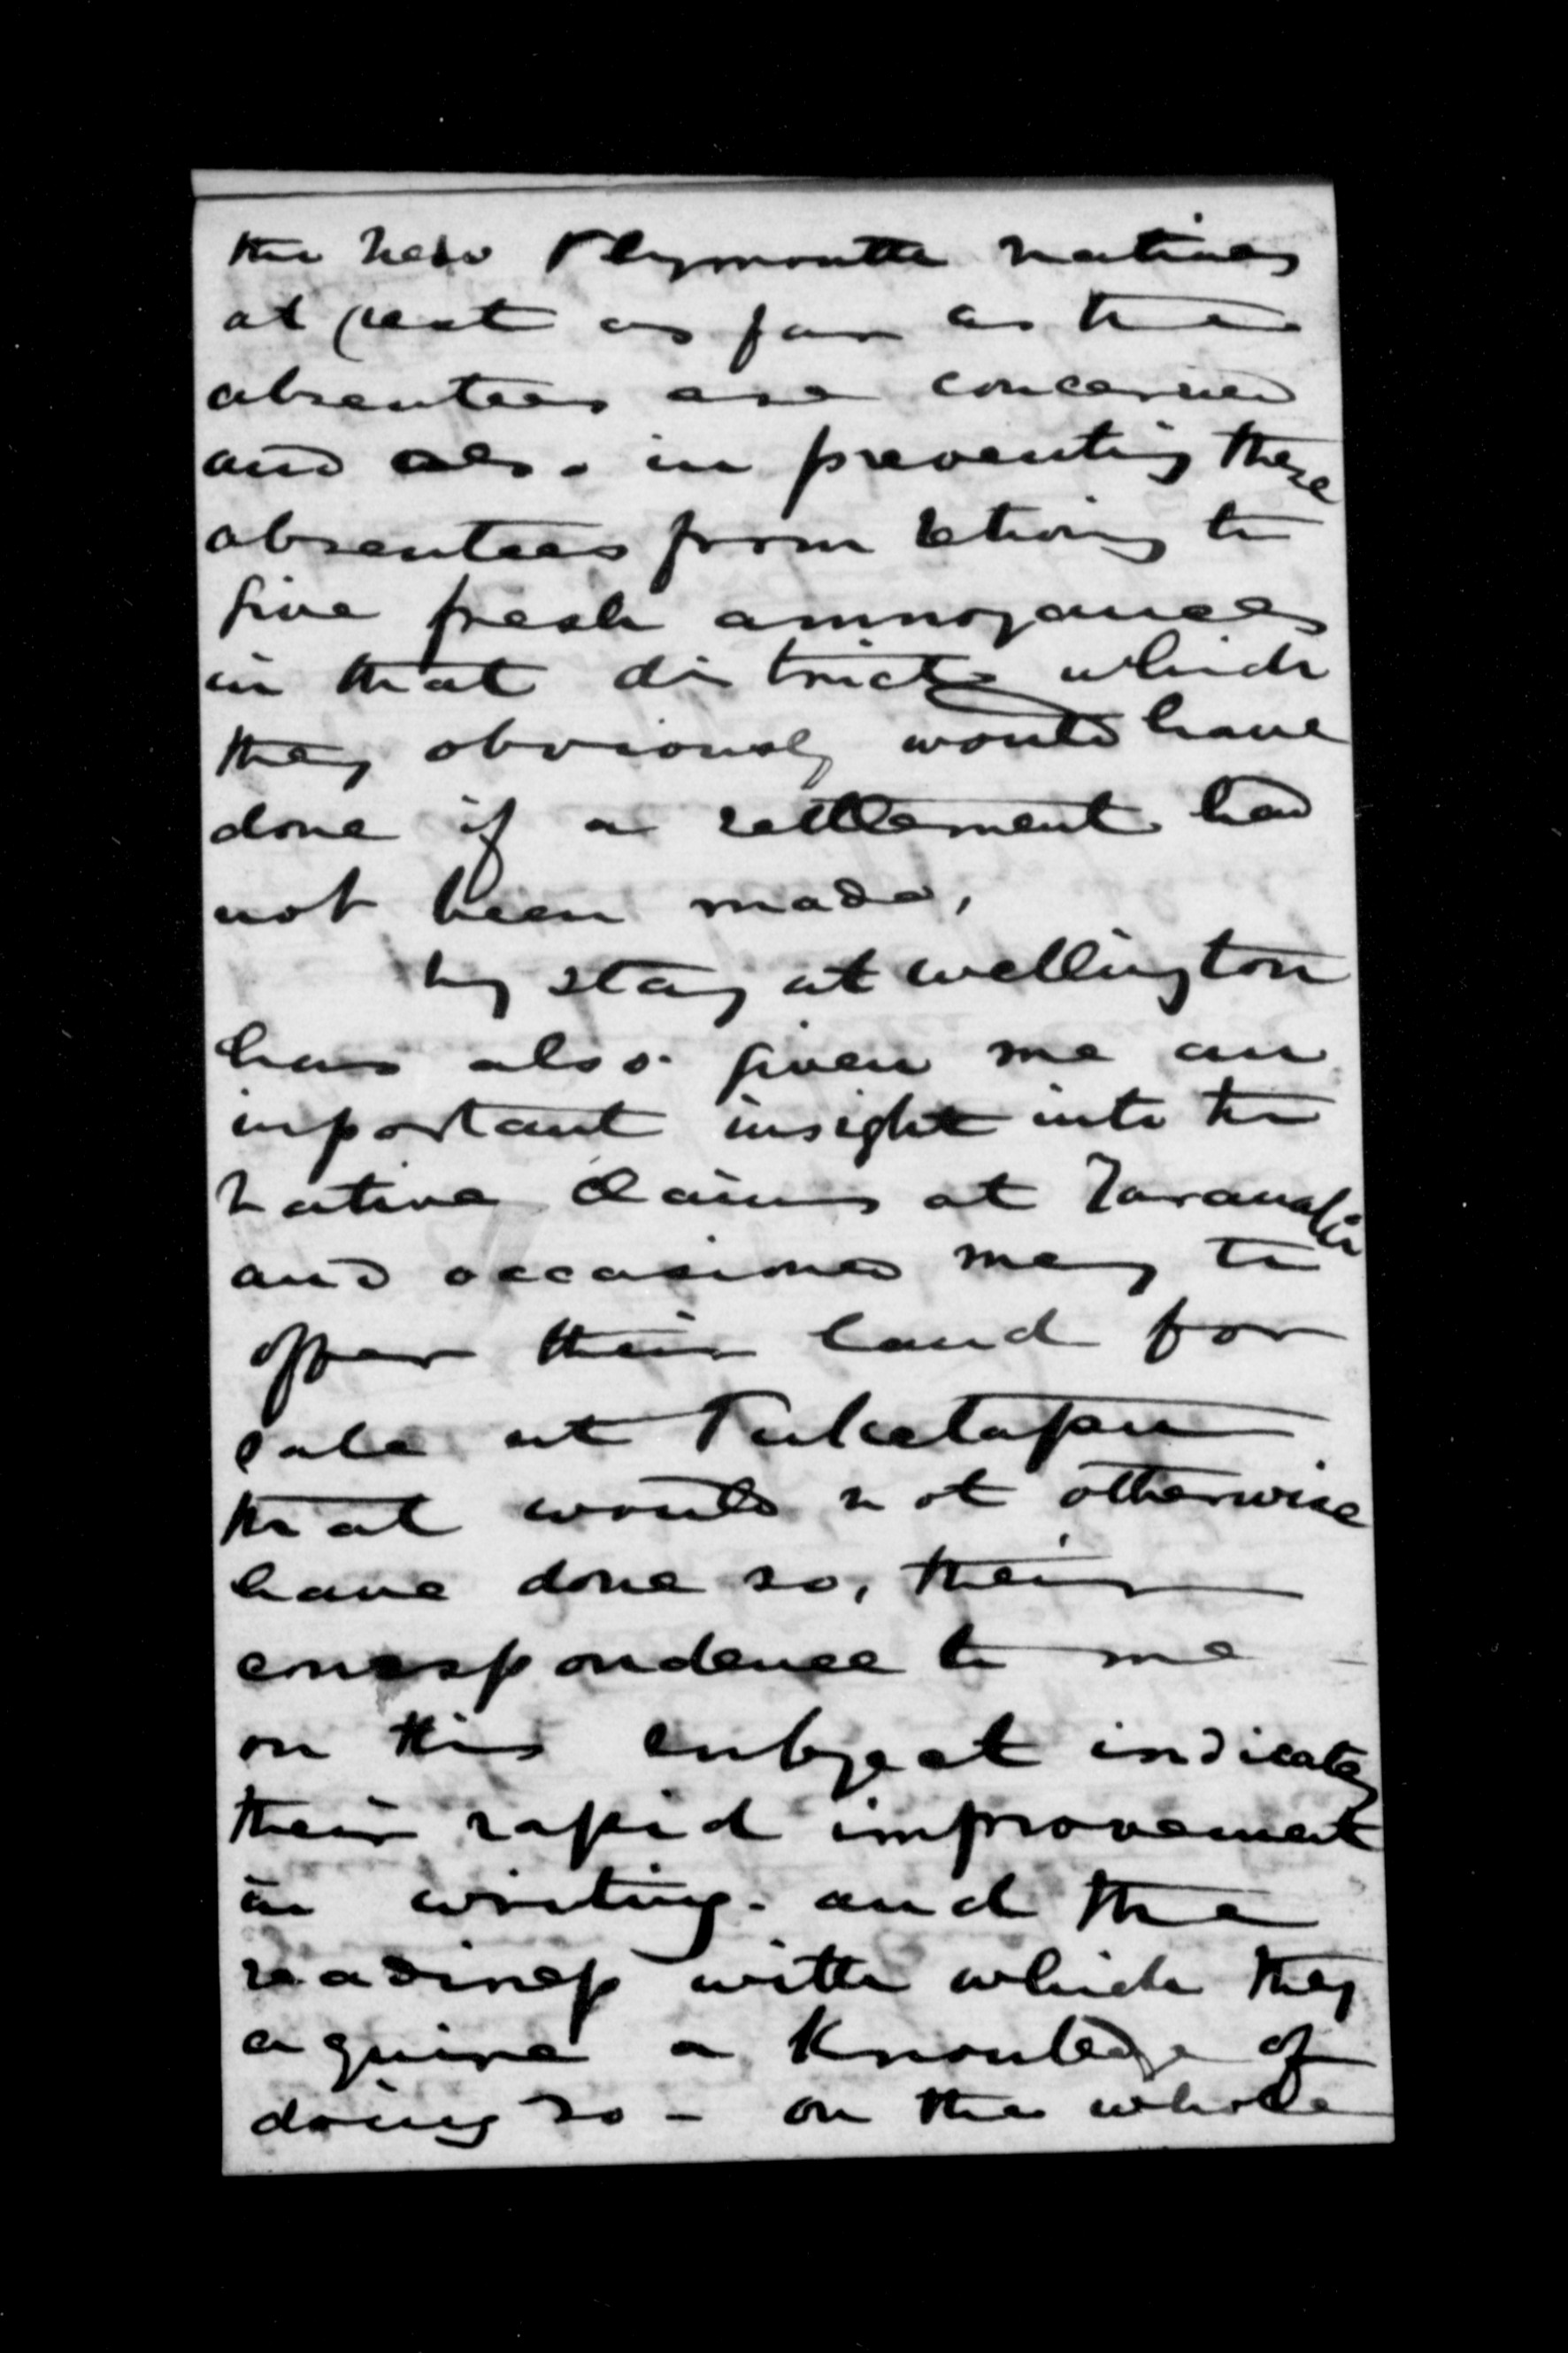 the New Plymouth natives
at rest as far as the
absentees are concerned
and also in preventing these
absentees from to
give fresh annoyances
in that district which
they obviously would have
done if a settlement had
not been made,
My stay at Wellington
has also given me an
important insight into the
native claims at Taranaki
and occasioned many to
offer their land for
sale at Puketapu
that would not otherwise
have done so, their
correspondence to me
on this subject indicates
their rapid improvement
in writing. and the
readiness with which they
aquire a knowledge of
doing so - on the whole